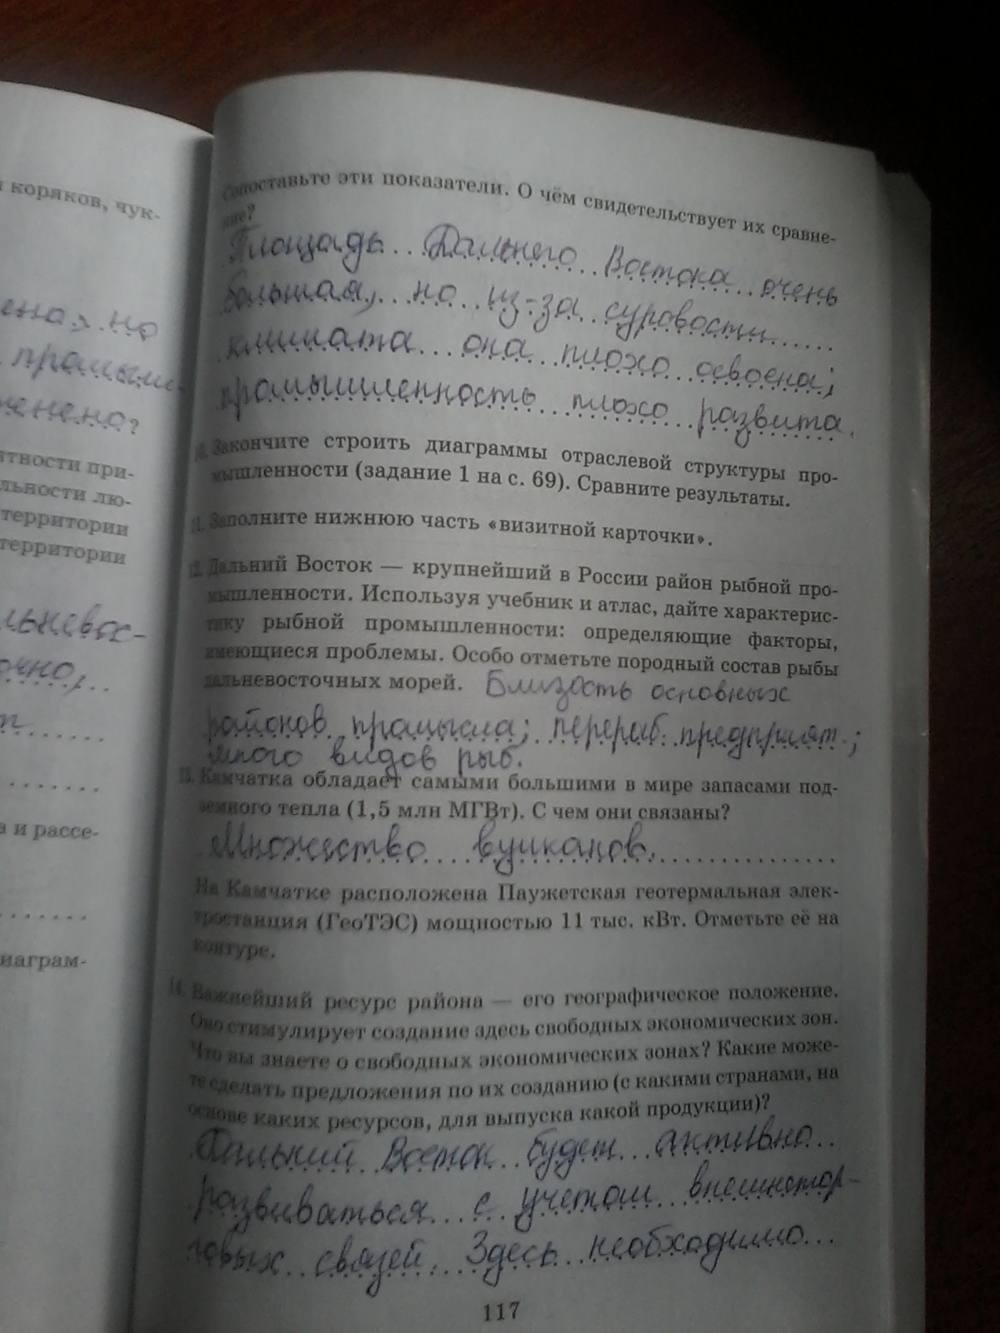 коряков, чук-
ена, но
промыш-
ченено?
ятности при-
льности лю-
территории
территории
льневос-
очно,
а и рассе-
диаграм-
Сопоставьте эти показатели. О чём свидетельствует их сравне-
ние?
Площадь Дальнего Востока очень
большая, но из-за суровости
климата она плохо освоена;
промышленность плохо развита.
10. Закончите строить диаграммы отраслевой структуры про-
мышленности (задание 1 на с. 69). Сравните результаты.
11. Заполните нижнюю часть «визитной карточки».
12. Дальний Восток — крупнейший в России район рыбной про-
мышленности. Используя учебник и атлас, дайте характерис-
тику рыбной промышленности: определяющие факторы,
имеющиеся проблемы. Особо отметьте породный состав рыбы
дальневосточных морей. Близость основных
районов промысла; перераб. предприят.;
много видов рыб.
13. Камчатка обладает самыми большими в мире запасами под-
земного тепла (1,5 млн МГВт). С чем они связаны?
Множество вулканов.
На Камчатке расположена Паужетская геотермальная элек-
тростанция (ГеоТЭС) мощностью 11 тыс. кВт. Отметьте её на
контуре.
14. Важнейший ресурс района — его географическое положение.
Оно стимулирует создание здесь свободных экономических зон.
Что вы знаете о свободных экономических зонах? Какие може-
те сделать предложения по их созданию (с какими странами, на
основе каких ресурсов, для выпуска какой продукции)?
Дальний Восток будет активно
развиваться с учетом внешнетор-
говых связей. Здесь необходимо
117